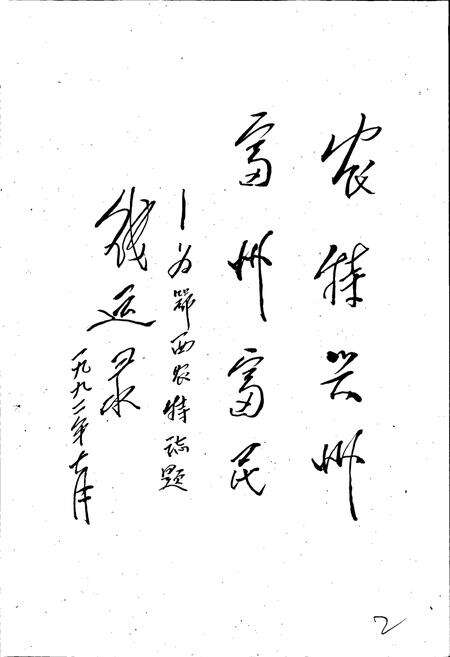 农特兴州
富州富民
—为鄂西农特志题
钱运录
一九九二年七月
2